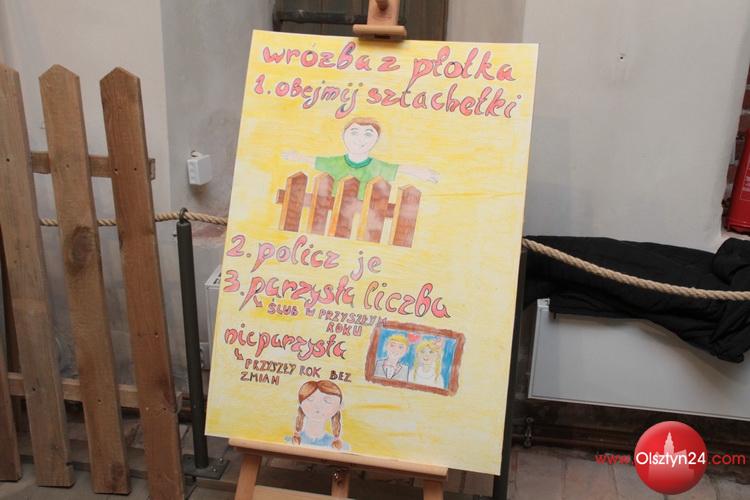 wróżba z płotka
1. obejmij sztachetki
2. policz je
3. parzysta liczba
↳ ŚLUB W PRZYSZŁYM
ROKU
nieparzysta
↳ PRZYSZŁY ROK BEZ
ZMIAN
www.Olsztyn24.com